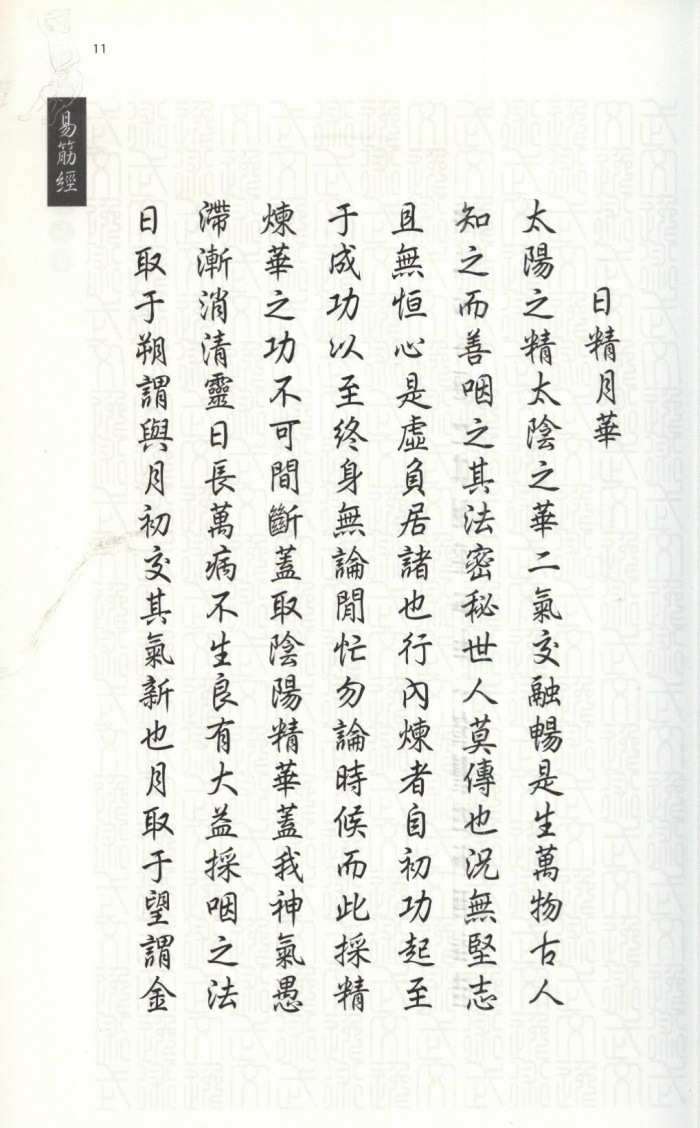 11
易筋經
日精月華
太陽之精太陰之華二氣交融暢是生萬物古人
知之而善咽之其法密秘世人莫傳也況無堅志
且無恒心是虛負居諸也行內煉者自初功起至
于成功以至終身無論閒忙勿論時候而此採精
煉華之功不可間斷蓋取陰陽精華蓋我神氣愚
滯漸消清靈日長萬病不生良有大益採咽之法
日取于朔謂與月初交其氣新也月取于望謂金